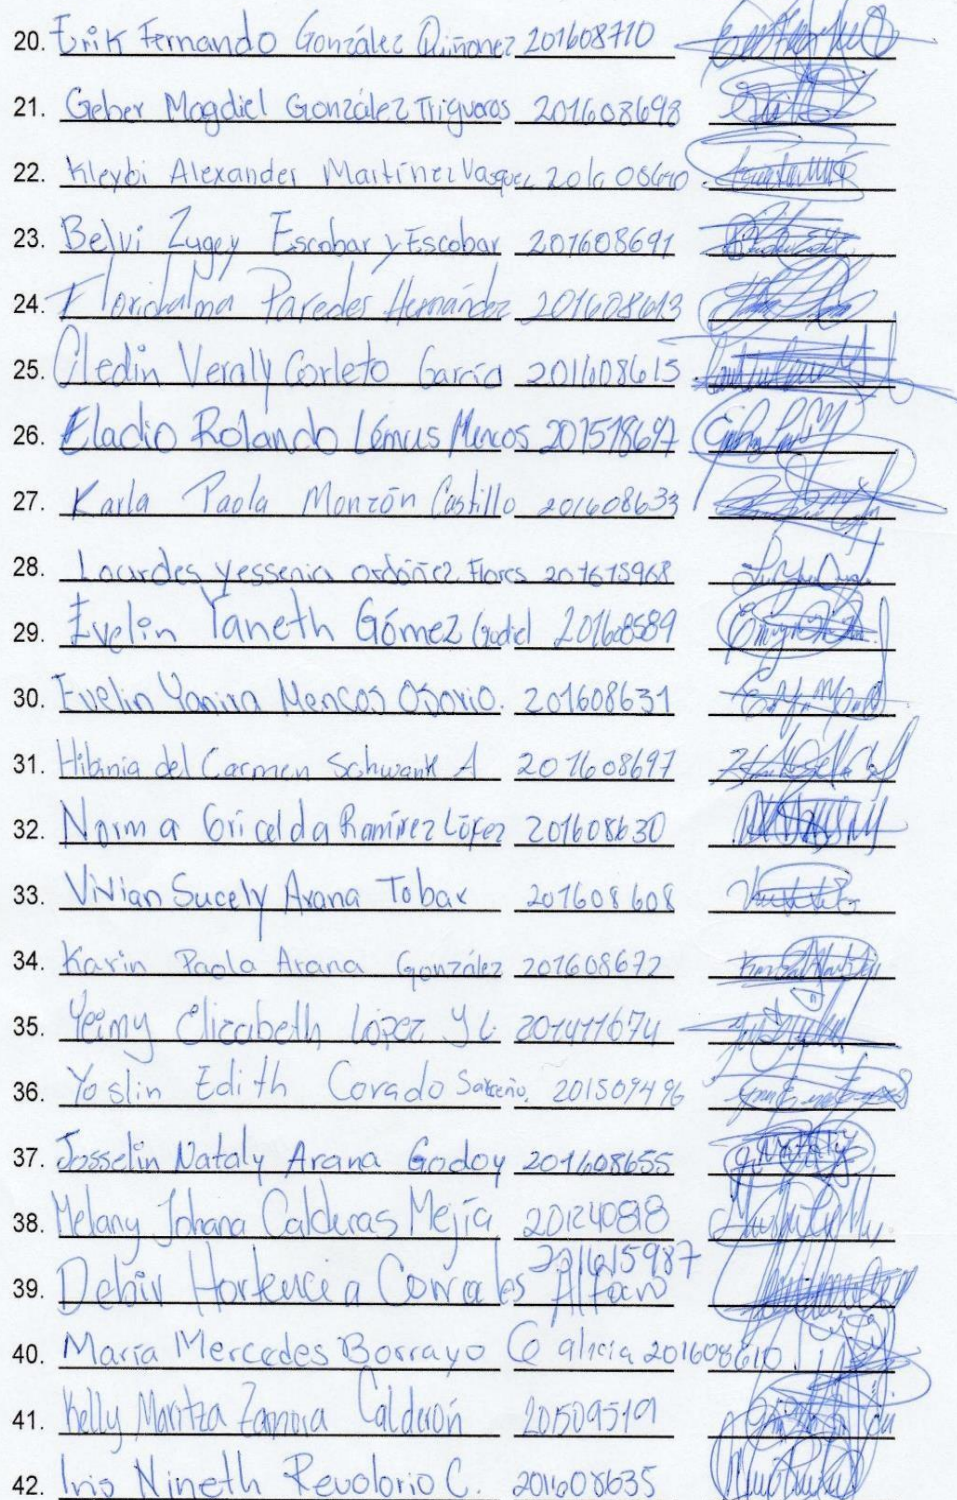 20. Erik Fernando González Quiñonez 201608710
21. Geber Magdiel González Trigueros 201608698
22. Kleybi Alexander Martínez Vasquez
23. Belvi Zugey Escobar y Escobar 201608691
24. Floridalma Paredes Hernández 201608613
25. Cledin Veraly Corleto García 201608615
26. Eladio Rolando Lémus Mencos 201518697
27. Karla Paola Monzón Castillo 201608633
28. Lourdes Yessenia Ordóñez Flores 201615968
29. Evelin Yaneth Gómez Godiel 201608589
30. Evelin Yanira Mencos Osorio. 201608631
31. Hibinia del Carmen Schwank A 201608697
32. Norma Gricelda Ramírez López 201608630
33. Vivian Sucely Arana Tobar 201608608
34. Karin Paola Arana González 201608672
35. Yeimy Elizabeth López y L. 201411674
36. Yoslin Edith Corado Sarceño. 201509496
37. Josselin Nataly Arana Godoy 201608655
38. Melany Johana Calderas Mejía 201240818
39. Debir Hortencia Corrales Alfaro 201615987
40. María Mercedes Borrayo Galicia 201608610
41. Kelly Maritza Zamora Calderón 201509519
42. Iris Nineth Revolorio C. 201608635